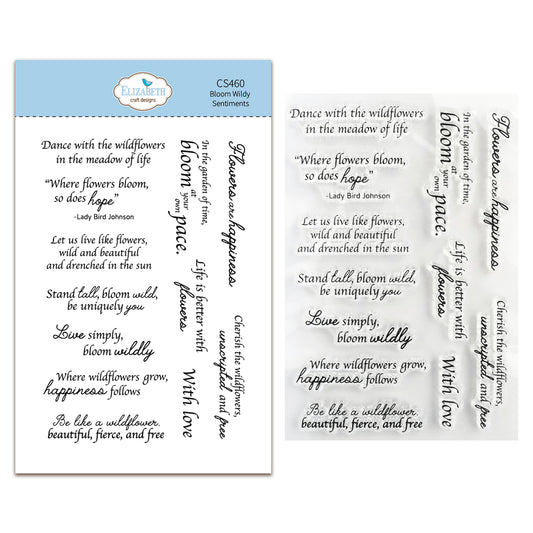 ELIZABETH
craft designs
CS460
Bloom Wildy
Sentiments
Dance with the wildflowers
in the meadow of life
"Where flowers bloom,
so does hope"
-Lady Bird Johnson
Let us live like flowers,
wild and beautiful
and drenched in the sun
Stand tall, bloom wild,
be uniquely you
Live simply,
bloom wildly
Where wildflowers grow,
happiness follows
Be like a wildflower.
beautiful, fierce, and free
In the garden of time,
bloom at your own pace.
Life is better with
flowers
With love
Flowers are happiness
Cherish the wildflowers,
unscripted and free
Dance with the wildflowers
in the meadow of life
"Where flowers bloom,
so does hope"
-Lady Bird Johnson
Let us live like flowers,
wild and beautiful
and drenched in the sun
Stand tall, bloom wild,
be uniquely you
Live simply,
bloom wildly
Where wildflowers grow,
happiness follows
Be like a wildflower.
beautiful, fierce, and free
In the garden of time,
bloom at your own pace.
Life is better with
flowers
With love
Flowers are happiness
Cherish the wildflowers,
unscripted and free